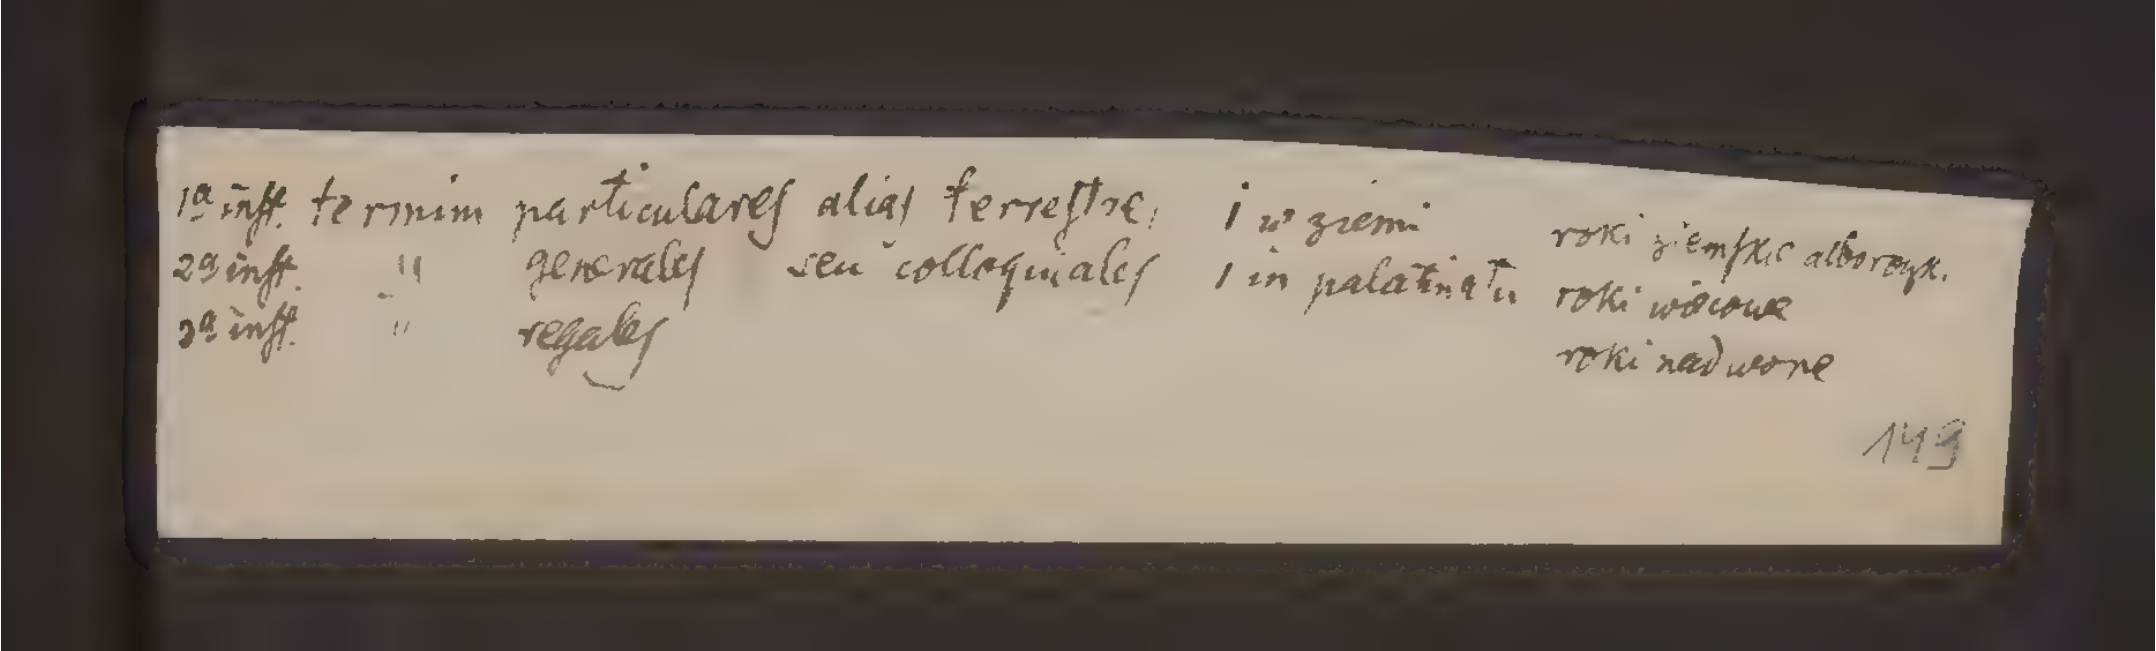 1ª inst. termini particulares alias terrestre, 1 w ziemi roki ziemskie albo roczk.
2ª inst. " generales seu colloquiales 1 in palatinatu roki wiecowe
3ª inst. " regales roki nadworne
149